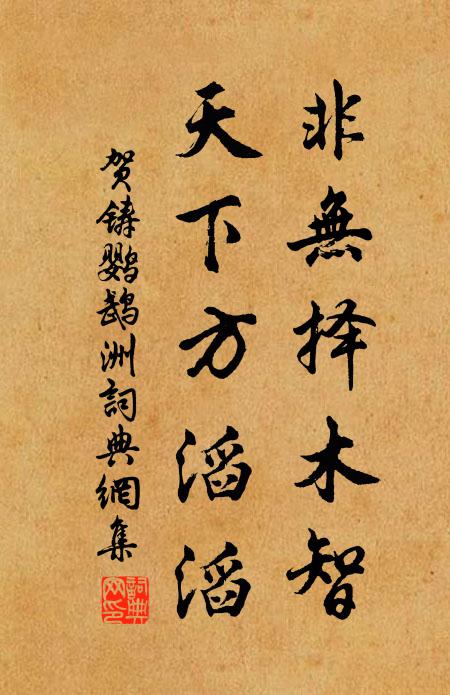 非無择木智
天下方滔滔
贺鑄鹦鹉洲詞典網集
詞典
网印